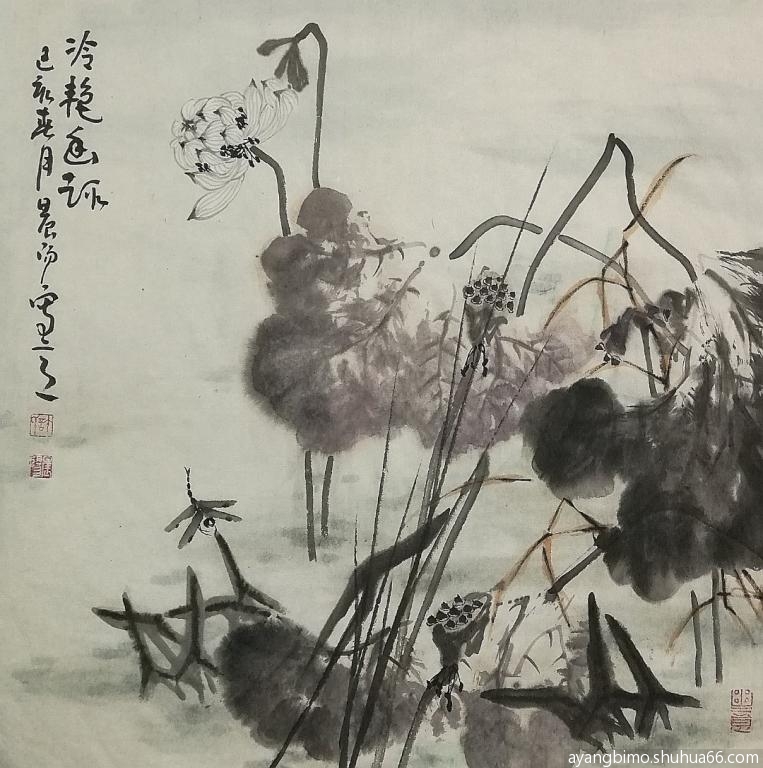 冷艳幽趣
己亥春月晨阳写之
ayangbimo.shuhua66.com